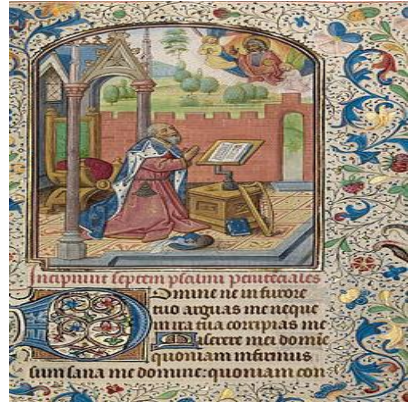 Incipiunt septem psalmi penitēciales
Domine ne in furore
tuo arguas me neque
in ira tua corripias me
Miserere mei domīe
quoniam infirmus
sum sana me domine: quoniam con